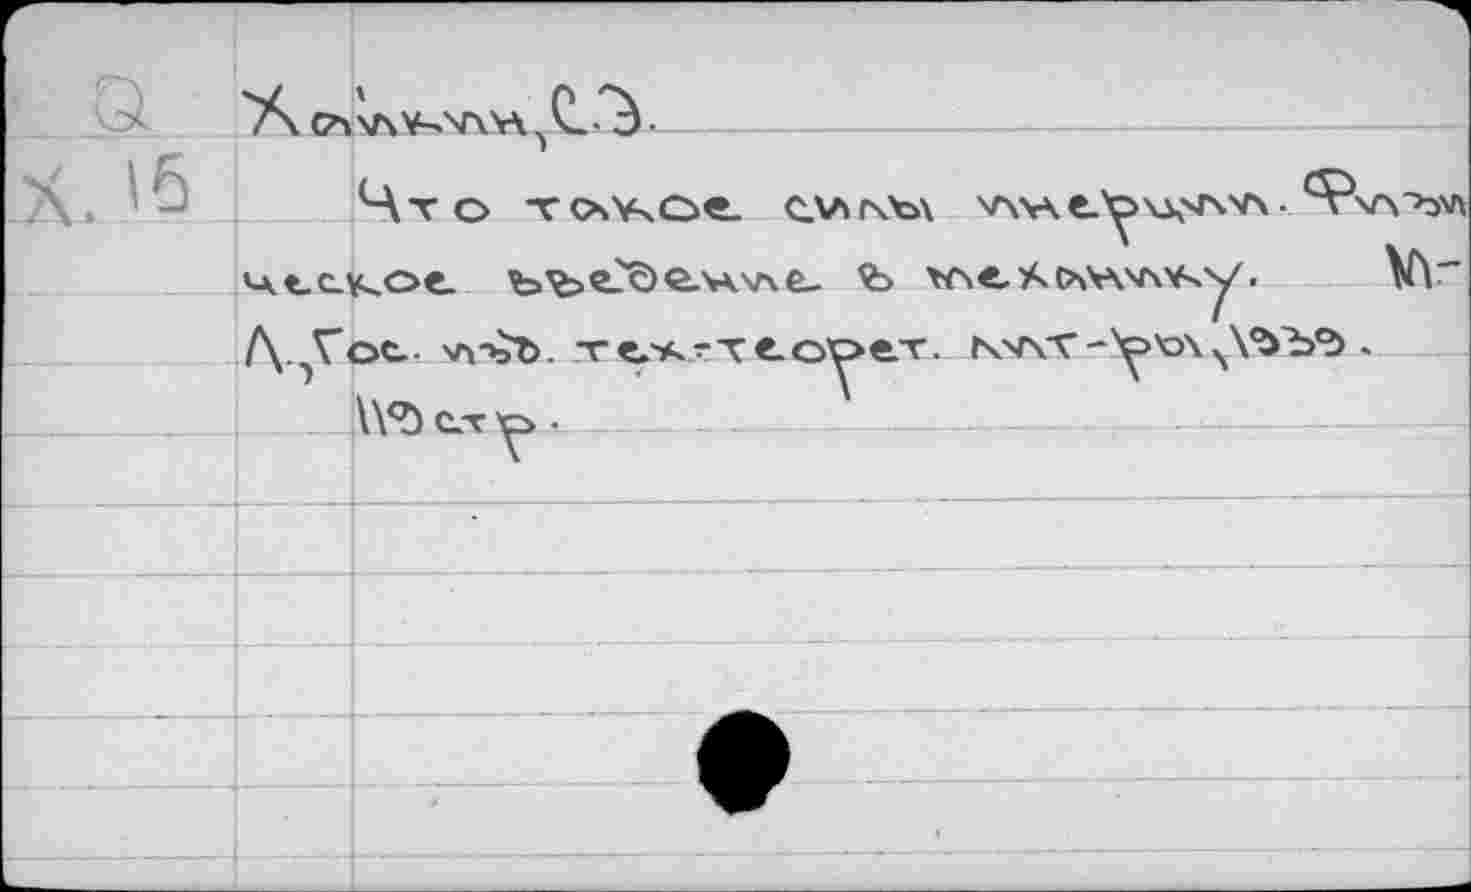 Q Хайкин,С.Э.
Х.15 Что такое силы инерции. Физи
ческое введение в механику. М-
Л.,Гос. изд. тех.-теорет. лит-ры,1939.
119 стр.